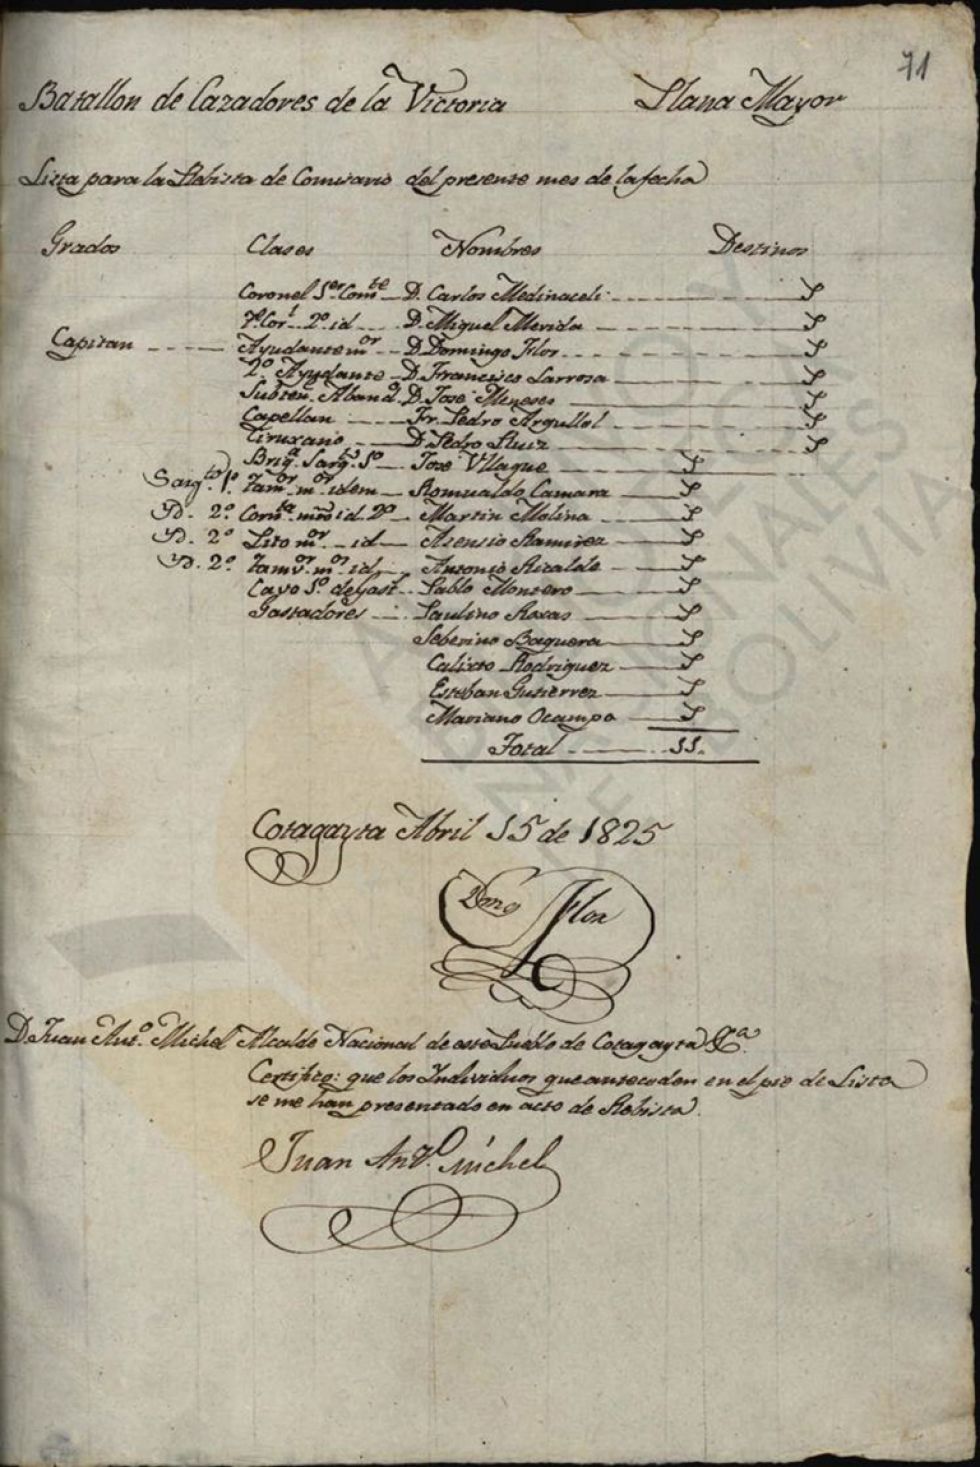 71
Batallon de Cazadores de la Victoria Plana Mayor
Lista para la Rebista de Comisario del presente mes de la fecha
Grados Clases Nombres Destinos
Coronel 1er Comte D. Carlos Medinaceli P
Tte Corl 2º id D. Miguel Merida P
Capitan Ayudante mor D. Domingo Flor P
2º Ayudante D. Francisco Larrosa P
Subten. Aband.o D. Jose Meneses P
Capellan Fr. Pedro Argullol P
Ciruxano D. Pedro Ruiz P
Brig.a Sarg.to 1º Jose Vllaque P
Sarg.to 1º. Tam.or m.or idem Romualdo Camara P
Yd. 2º. Corn.ta id 2º Martin Molina P
Yd. 2º Pito m.or id Asensio Ramirez P
Yd. 2º. Tam.or m.or id Antonio Ricalde P
Cavo 1º. de Gast. Pablo Montero 1
Gastadores Paulino Rosas 1
Seberino Baquera 1
Calixto Rodriguez 1
Esteban Gutierrez 1
Mariano Ocampo 1
Total 11.
Cotagayta Abril 15 de 1825
Domgo Flor
D. Juan Ant.o Michel Alcalde Nacional de este Pueblo de Cotagayta &.a
Certifico: que los Yndividuos que anteceden en el pie de Lista
se me han presentado en acto de Rebista.
Juan Ant.o Michel
ARCHIVO Y
NACIONALES
DE BOLIVIA